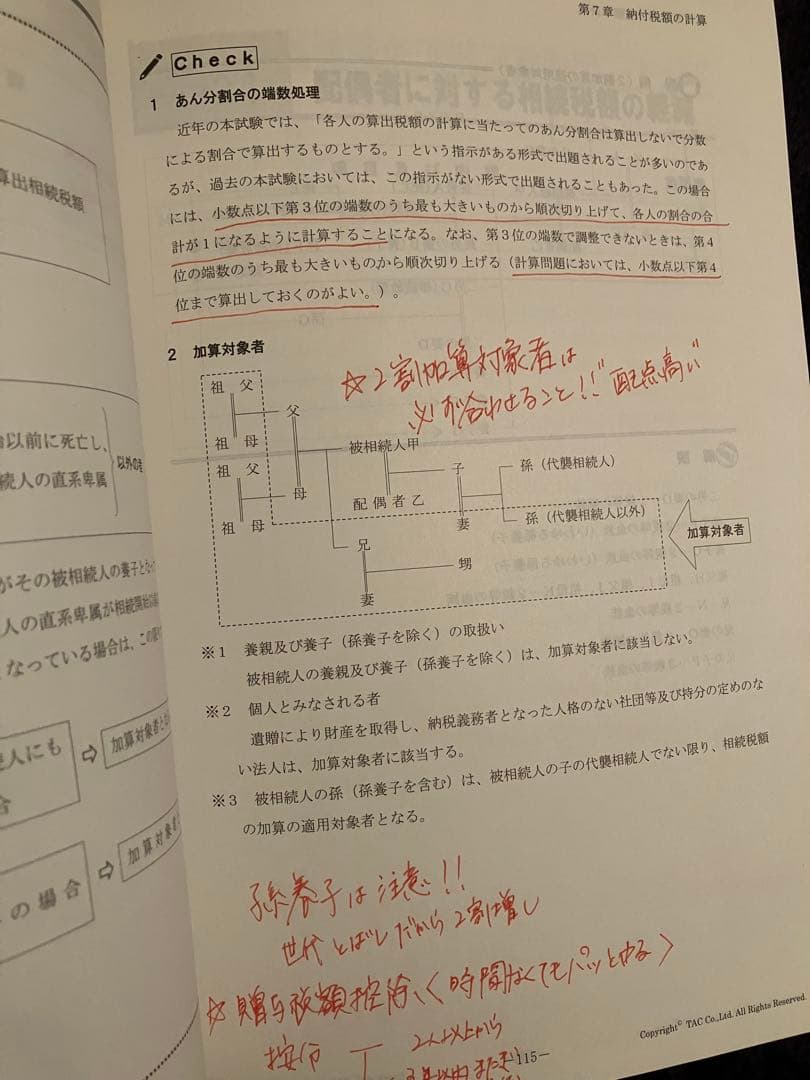 第7章 納付税額の計算
Check
1 あん分割合の端数処理
近年の本試験では、「各人の算出税額の計算に当たってのあん分割合は算出しないで分数
による割合で算出するものとする。」という指示がある形式で出題されることが多いのであ
るが、過去の本試験においては、この指示がない形式で出題されることもあった。この場合
には、小数点以下第3位の端数のうち最も大きいものから順次切り上げて、各人の割合の合
計が1になるように計算することになる。なお、第3位の端数で調整できないときは、第4
位の端数のうち最も大きいものから順次切り上げる(計算問題においては、小数点以下第4
位まで算出しておくのがよい。)。
2 加算対象者
☆2割加算対象者は
必ず合わせること!! 配点高い
祖 父
父
祖 母
被相続人甲
子
孫(代襲相続人)
祖 父
母
配偶者乙
妻
孫(代襲相続人以外)
祖 母
加算対象者
兄
甥
妻
※1 養親及び養子(孫養子を除く)の取扱い
被相続人の養親及び養子(孫養子を除く)は、加算対象者に該当しない。
※2 個人とみなされる者
遺贈により財産を取得し、納税義務者となった人格のない社団等及び持分の定めのな
い法人は、加算対象者に該当する。
※3 被相続人の孫(孫養子を含む)は、被相続人の子の代襲相続人でない限り、相続税額
の加算の適用対象者となる。
孫養子は注意!!
世代とばしだから2割増し
☆贈与税額控除、〈時間なくてもパッとやる〉
按分
2人以上から
Copyright© TAC Co.,Ltd. All Rights Reserved.
115−
算出相続税額
以前に死亡し、
続人の直系卑属
以外の者
がその被相続人の養子と
人の直系卑属が相続開始
なっている場合は、この
人にも
合
加算対象者
の場合
加算対象者